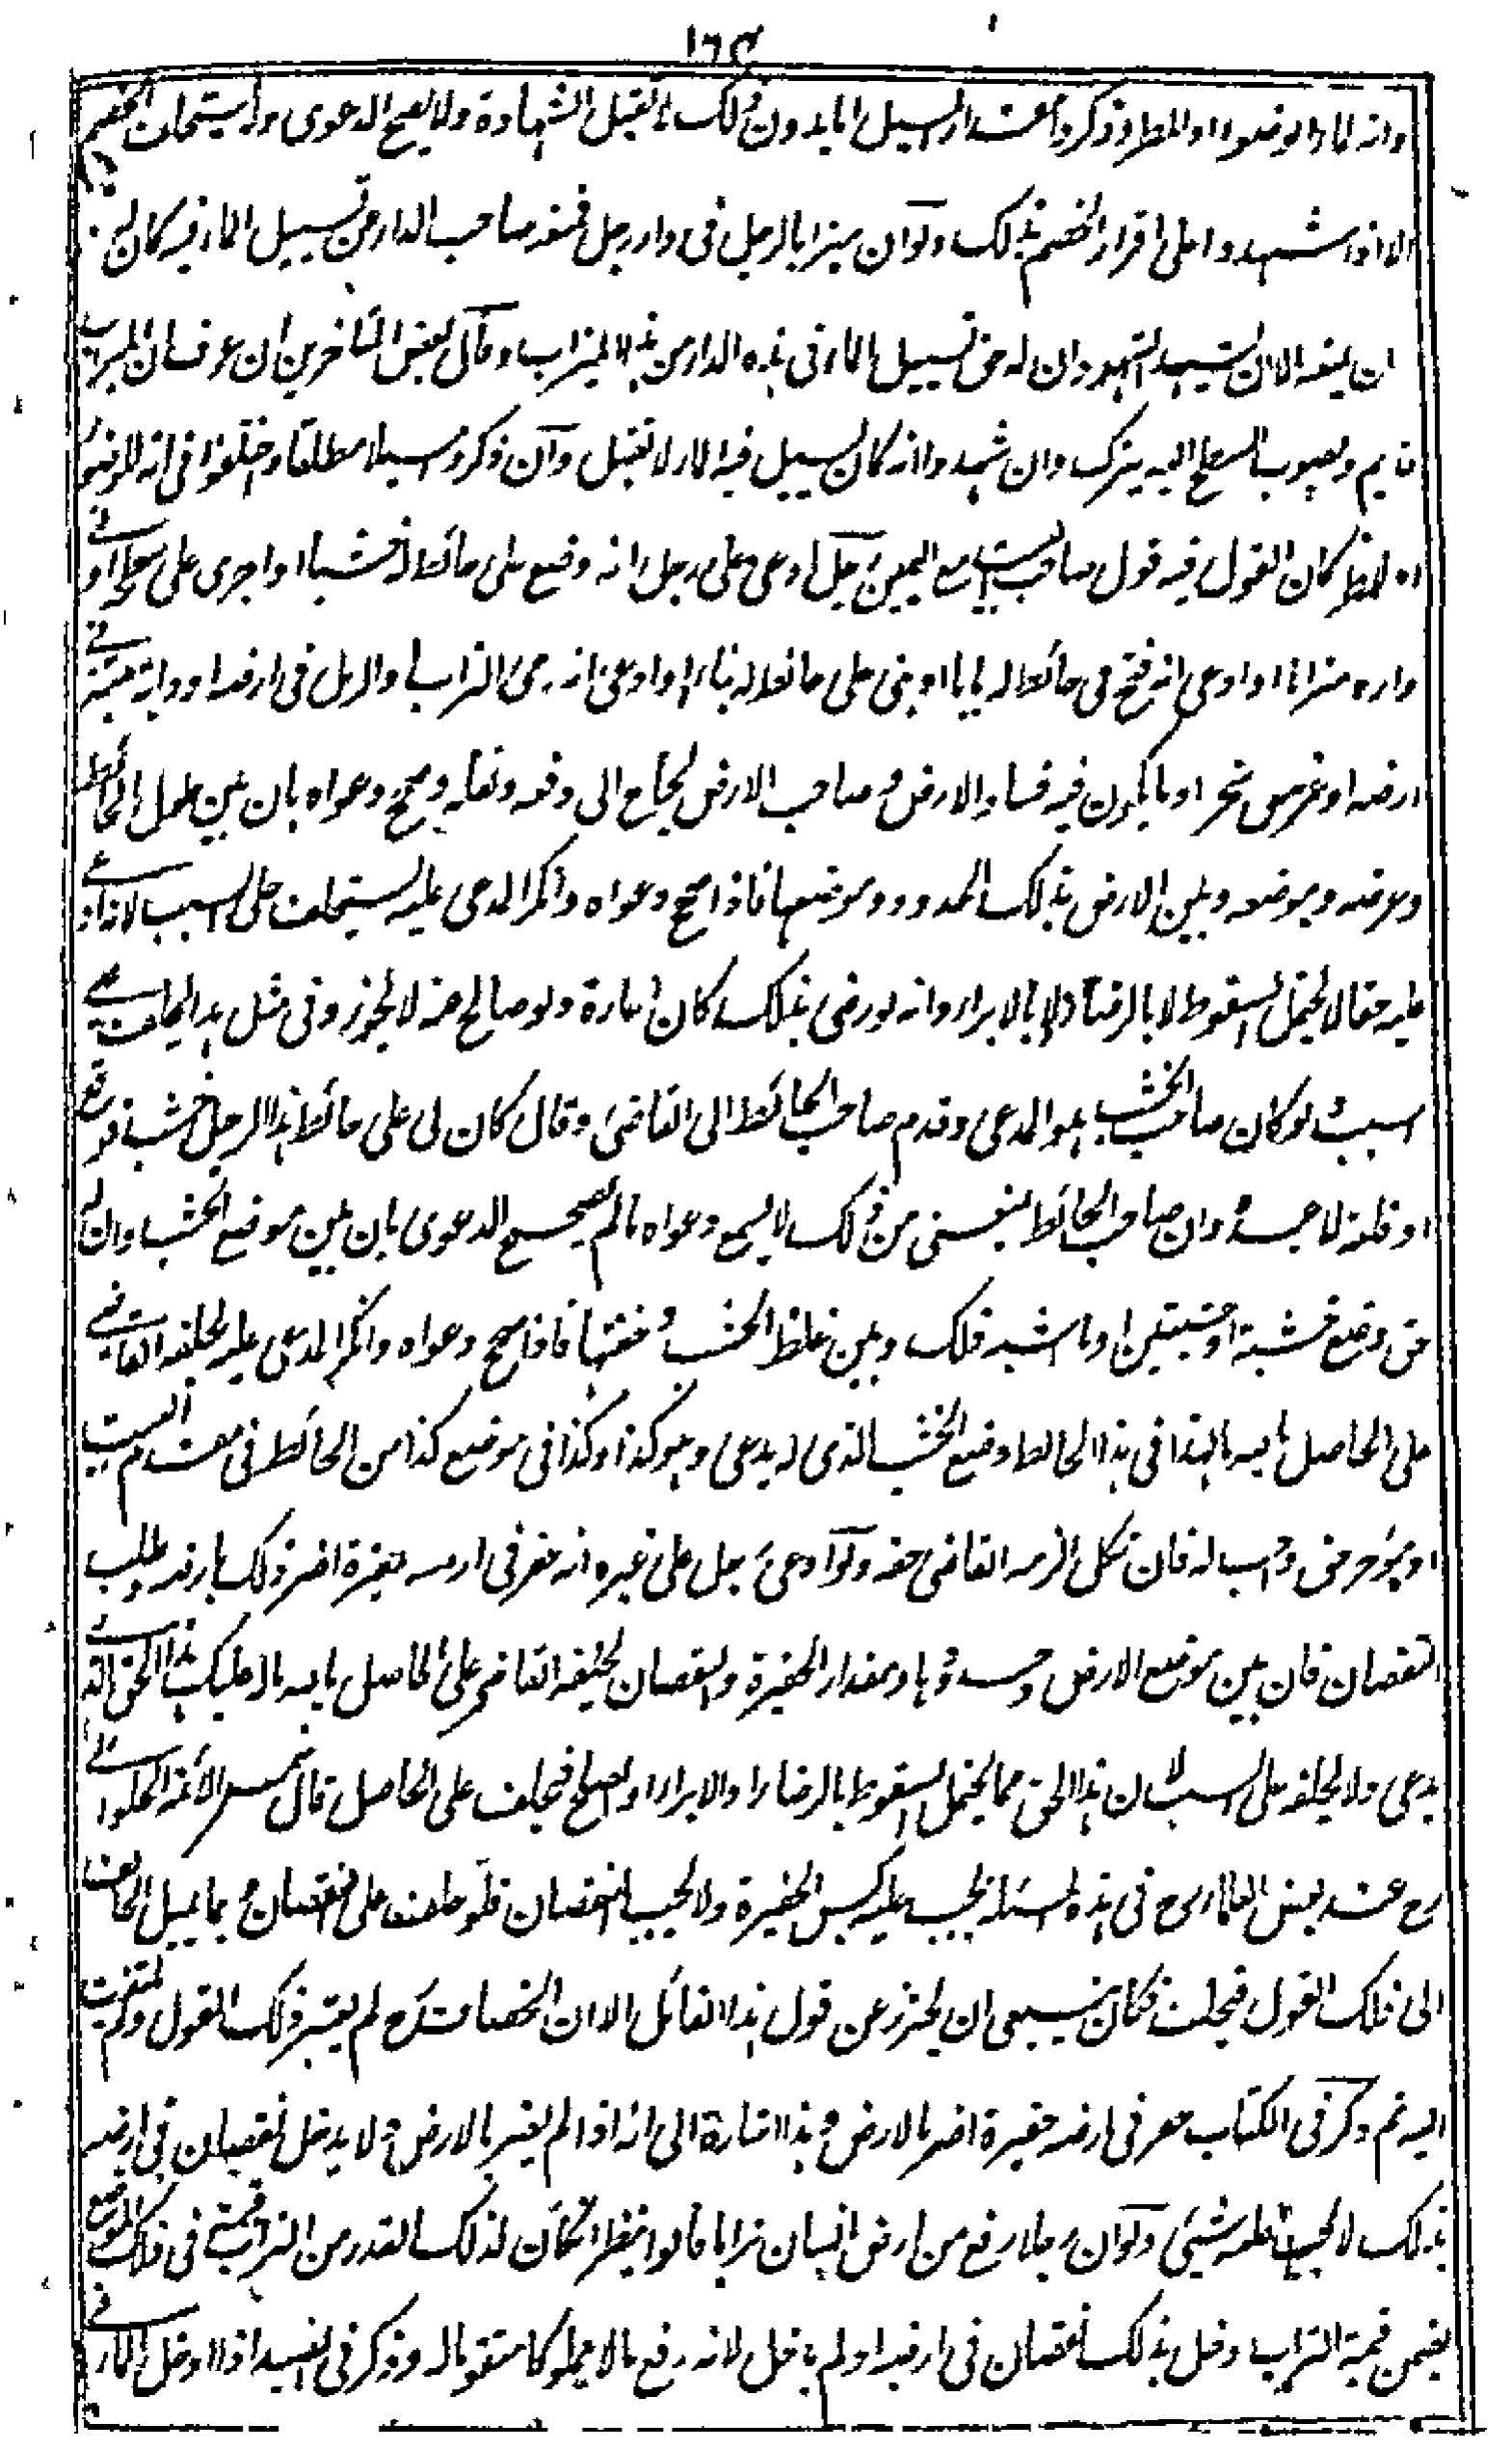 ١٦٤
وانه لماء الوضوء او المطر وذكروا مقدار المسيل اما بدون ذلك لا تقبل الشهادة ولا يصح الدعوى ولا يستحلف الخصم
الا اذا شهدوا على اقرار الخصم بذلك ولو ان ميزابا لرجل في دار رجل فمنعه صاحب الدار عن تسييل الماء فيه كان له
ان يمنعه الا ان يشهد الشهود ان له حق تسييل الماء في هذه الدار من هذا الميزاب وقال بعض المتأخرين ان عرف ان الميزاب
قديم وبصوب السطح اليه يترك وان شهدوا انه كان يسيل فيه الماء لا تقبل وان ذكروا مسيلا مطلقا واختلفوا في انه للوضوء
او للمطر كان القول فيه قول صاحب البيت مع اليمين رجل ادعى على رجل انه وضع على حائط له خشبا او اجرى على سطحه او في
داره ميزابا او ادعى انه فتح في حائط له بابا او بنى على حائط له بناء او ادعى انه رمى التراب او الرمل في ارضه او دابة ميتة في
ارضه او غرس شجرا او ما يكون فيه فساد الارض وصاحب الارض يحتاج الى رفعه ونقله وصحح دعواه بان بين طول الحائط
وعرضه وموضعه وبين الارض بذلك الحدود وموضعها فاذا صح دعواه وانكر المدعى عليه يستحلف على السبب لانه
عليه حقا لا يحتمل السقوط لا بالرضا ولا بالابراء وانه لو رضي بذلك كان اعارة ولو صالح عنه لا يجوز وفي مثل هذا يحلف على
السبب ولو كان صاحب الخشب هو المدعي وقدم صاحب الحائط الى القاضي وقال كان لي على حائط هذا الرجل خشب فوقع
او قلعته لاعيده وان صاحب الحائط يمنعني من ذلك لا يسمع دعواه ما لم يصحح الدعوى بان بين موضع الخشب وان له
حق وضع خشبة او خشبتين او ما اشبه ذلك وبين غلظ الخشب وخفتها فاذا صح دعواه وانكر المدعى عليه يحلفه القاضي
على الحاصل بالله ما لهذا في هذا الحائط وضع الخشب الذي له يدعي وهو كذا وكذا في موضع كذا من الحائط في مقدم البيت
او مؤخره حق واجب له فان نكل الزمه القاضي حقه ولو ادعى رجل على غيره انه حفر في ارضه حفيرة اضر ذلك بارضه وطلب
النقصان فان بين موضع الارض وحدودها ومقدار الحفيرة والنقصان يحلفه القاضي على الحاصل بالله ما له عليك هذا الحق الذي
يدعي ولا يحلفه على السبب لان هذا الحق مما يحتمل السقوط بالرضا او الابراء او الصلح فيحلف على الحاصل قال شمس الائمة الحلوائي
رح عند بعض العلماء رح في هذه المسئلة يجب عليه كبس الحفيرة ولا يجب النقصان فلو حلف على النقصان ربما يميل الحالف
الى ذلك القول فيحلف فكان ينبغي ان يحترز عن قول هذا القائل الا ان الخصاف رح لم يعتبر ذلك القول ولم يلتفت
اليه ثم ذكر في الكتاب حفر في ارضه حفيرة اضر بالارض وهذا اشارة الى انه اذا لم يضر بالارض ولا يدخل نقصان في ارضه
بذلك لا يجب عليه شيئ ولو ان رجلا رفع من ارض انسان ترابا قالوا ينظر ان كان لذلك القدر من التراب قيمة في ذلك الموضع
يضمن قيمة التراب دخل بذلك نقصان في ارضه او لم يدخل لانه رفع مالا مملوكا متقوما له وذكر في السير اذا ادخل الماء في